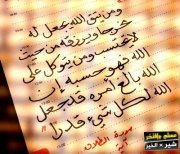 ومن يتق الله يجعل له
مخرجا ويرزقه من حيث
لا يحتسب ومن يتوكل على
الله فهو حسبه إن
الله بالغ أمره قد جعل
الله لكل شيء قدرا
سورة الطلاق
شير × الخير